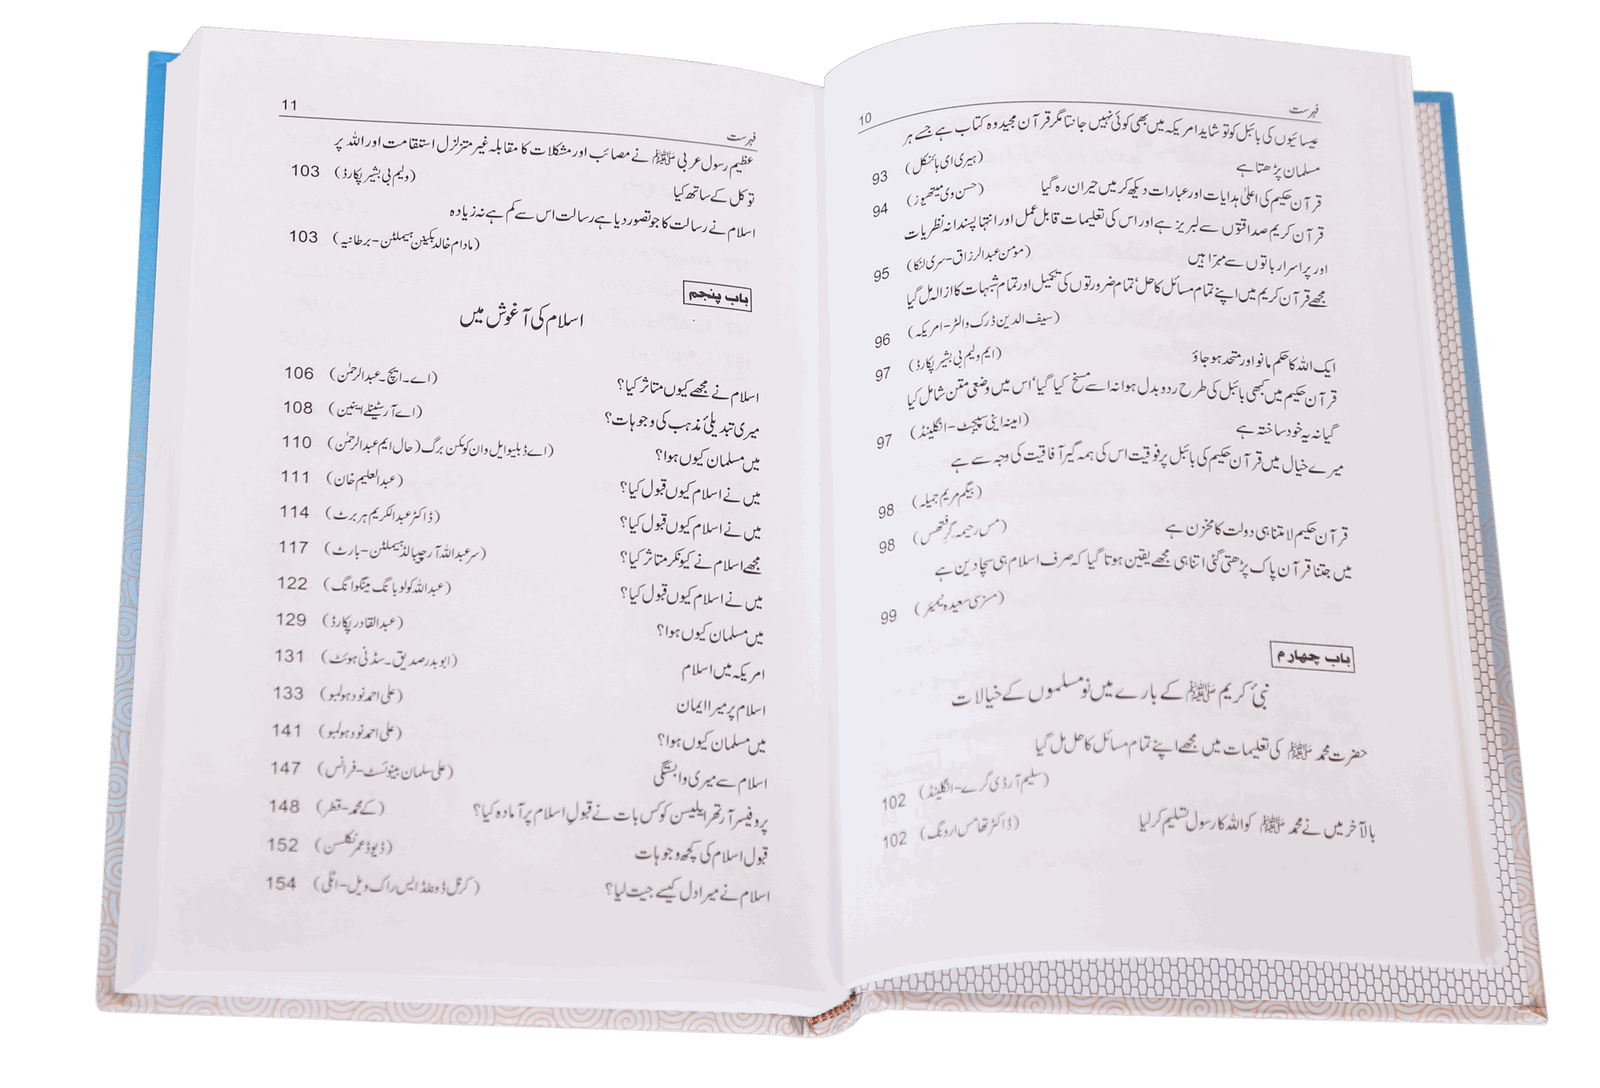 فہرست
10
عیسائیوں کی بائبل کو تو شاید امریکہ میں بھی کوئی نہیں جانتا مگر قرآن مجید وہ کتاب ہے جسے ہر
مسلمان پڑھتا ہے (ہیری ای ہائنکل) 93
قرآن حکیم کی اعلیٰ ہدایات اور عبارات دیکھ کر میں حیران رہ گیا (حسن وی میتھیوز) 94
قرآن کریم صداقتوں سے لبریز ہے اور اس کی تعلیمات قابل عمل اور انتہا پسندانہ نظریات
اور پراسرار باتوں سے مبرّا ہیں (مومن عبدالرزاق-سری لنکا) 95
مجھے قرآن کریم میں اپنے تمام مسائل کا حل، تمام ضرورتوں کی تکمیل اور تمام شبہات کا ازالہ مل گیا
(سیف الدین ڈرک والٹر-امریکہ) 96
ایک اللہ کا حکم مانو اور متحد ہو جاؤ (ایم ولیم بی بشیر پکارڈ) 97
قرآن حکیم میں کبھی بائبل کی طرح ردوبدل ہوا نہ اسے مسخ کیا گیا، اس میں وضعی متن شامل کیا
گیا نہ یہ خود ساختہ ہے (امینہ اینی سپیجٹ-انگلینڈ) 97
میرے خیال میں قرآن حکیم کی بائبل پر فوقیت اس کی ہمہ گیر آفاقیت کی وجہ سے ہے
(بیگم مریم جمیلہ) 98
قرآن حکیم لامتناہی دولت کا مخزن ہے (مس رحیمہ گرفتھس) 98
میں جتنا قرآن پاک پڑھتی گئی اتنا ہی مجھے یقین ہوتا گیا کہ صرف اسلام ہی سچا دین ہے
(مسز سی سعیدہ نیمیئر) 99
باب چہارم
نبیٔ کریم ﷺ کے بارے میں نو مسلموں کے خیالات
حضرت محمد ﷺ کی تعلیمات میں مجھے اپنے تمام مسائل کا حل مل گیا
(سلیم آر ڈی گرے-انگلینڈ) 102
بالآخر میں نے محمد ﷺ کو اللہ کا رسول تسلیم کر لیا (ڈاکٹر تھامس ارونگ) 102
فہرست
11
عظیم رسول عربی ﷺ نے مصائب اور مشکلات کا مقابلہ غیر متزلزل استقامت اور اللہ پر
توکل کے ساتھ کیا (ولیم بی بشیر پکارڈ) 103
اسلام نے رسالت کا جو تصور دیا ہے رسالت اس سے کم ہے نہ زیادہ
(مادام خالد بکینن ہیملٹن-برطانیہ) 103
باب پنجم
اسلام کی آغوش میں
اسلام نے مجھے کیوں متاثر کیا؟ (اے۔ایچ۔عبدالرحمٰن) 106
میری تبدیلیٔ مذہب کی وجوہات؟ (اے آر سٹینلے اینین) 108
میں مسلمان کیوں ہوا؟ (اے ڈبلیو ایل وان کوکمن برگ (حال ایم عبدالرحمٰن) 110
میں نے اسلام کیوں قبول کیا؟ (عبدالعلیم خان) 111
میں نے اسلام کیوں قبول کیا؟ (ڈاکٹر عبدالکریم ہربرٹ) 114
مجھے اسلام نے کیونکر متاثر کیا؟ (سر عبداللہ آرچیبالڈ ہیملٹن-بارٹ) 117
میں نے اسلام کیوں قبول کیا؟ (عبداللہ کولو بانگ مینگوانگ) 122
میں مسلمان کیوں ہوا؟ (عبدالقادر پکارڈ) 129
امریکہ میں اسلام (ابوبدر صدیق۔سڈنی ہوئٹ) 131
اسلام پر میرا ایمان (علی احمد نود ہولمبو) 133
میں مسلمان کیوں ہوا؟ (علی احمد نود ہولمبو) 141
اسلام سے میری وابستگی (علی سلمان بینوئٹ-فرانس) 147
پروفیسر آرتھر ایلیسن کو کس بات نے قبولِ اسلام پر آمادہ کیا؟ (کے محمد-قطر) 148
قبول اسلام کی کچھ وجوہات (ڈیوڈ عمر نکلسن) 152
اسلام نے میرا دل کیسے جیت لیا؟ (کرنل ڈونلڈ ایس راک ویل-اٹلی) 154